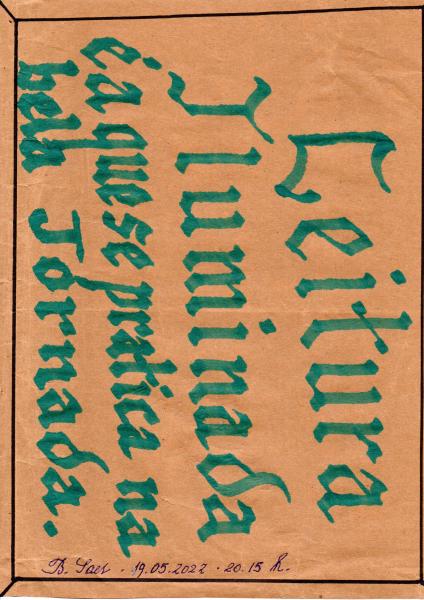 Leitura
Iluminada
é a que se pratica na
bela Jornada.
B. Saes - 19.05.2022 - 20.15 h.